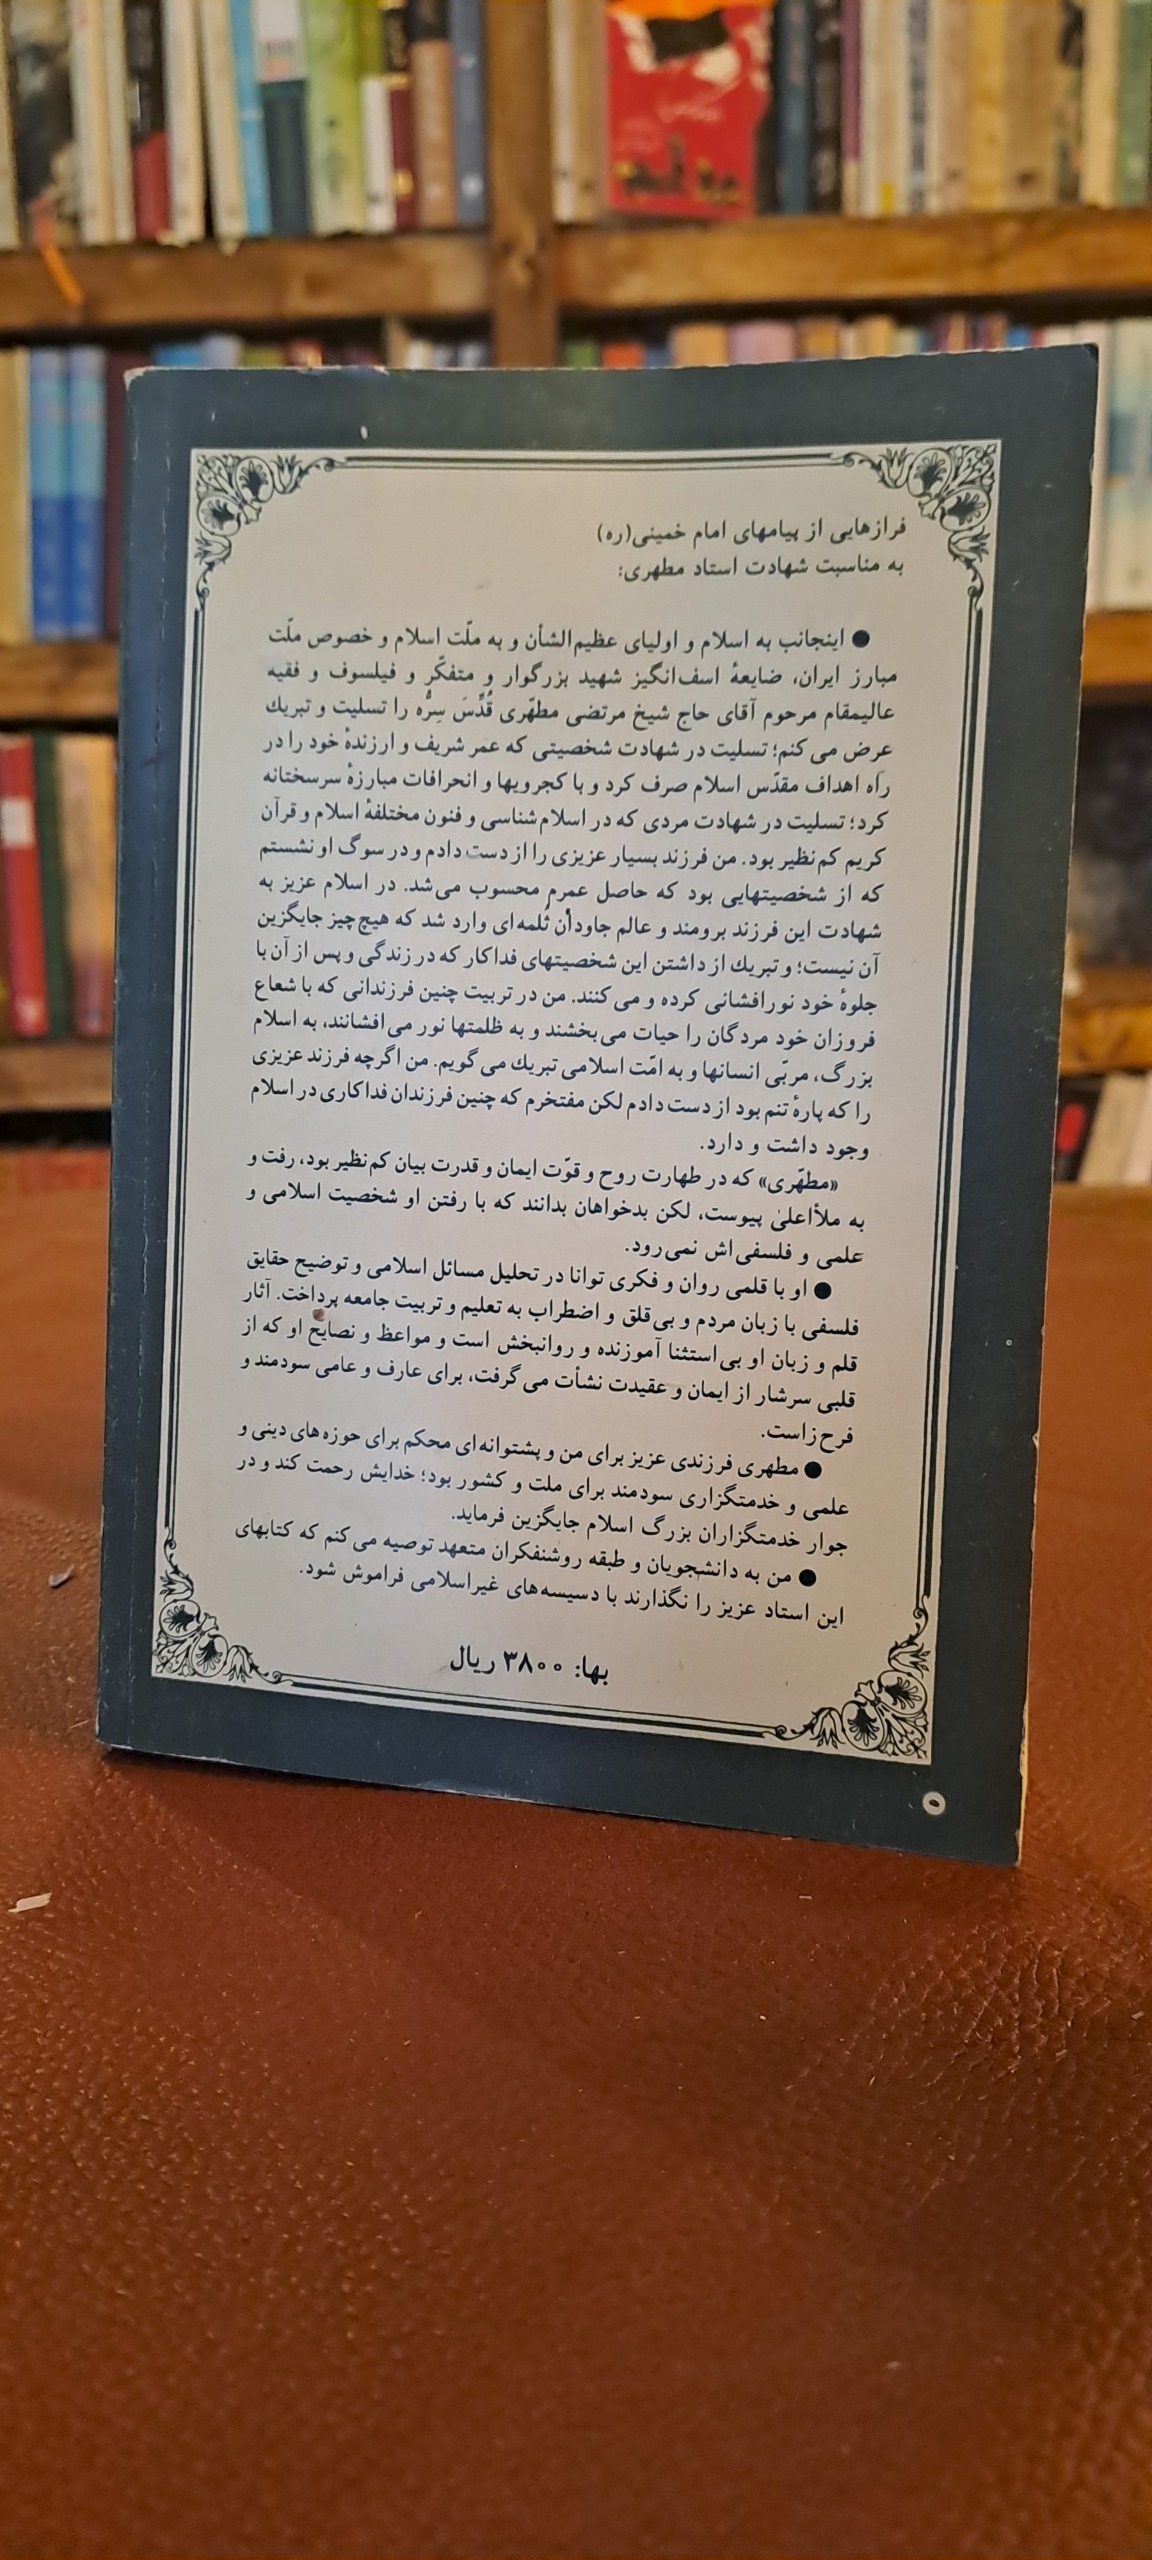 فرازهایی از پیامهای امام خمینی(ره)
به مناسبت شهادت استاد مطهری:
● اینجانب به اسلام و اولیای عظیم‌الشأن و به ملّت اسلام و خصوص ملّت
مبارز ایران، ضایعهٔ اسف‌انگیز شهید بزرگوار و متفکّر و فیلسوف و فقیه
عالیمقام مرحوم آقای حاج شیخ مرتضی مطهّری قُدِّسَ سِرُّه را تسلیت و تبریك
عرض می‌کنم؛ تسلیت در شهادت شخصیتی که عمر شریف و ارزندهٔ خود را در
راه اهداف مقدّس اسلام صرف کرد و با کجرویها و انحرافات مبارزهٔ سرسختانه
کرد؛ تسلیت در شهادت مردی که در اسلام‌شناسی و فنون مختلفهٔ اسلام و قرآن
کریم کم‌نظیر بود. من فرزند بسیار عزیزی را از دست دادم و در سوگ او نشستم
که از شخصیتهایی بود که حاصل عمرم محسوب می‌شد. در اسلام عزیز به
شهادت این فرزند برومند و عالم جاودان ثُلمه‌ای وارد شد که هیچ‌چیز جایگزین
آن نیست؛ و تبریك از داشتن این شخصیتهای فداکار که در زندگی و پس از آن با
جلوهٔ خود نورافشانی کرده و می‌کنند. من در تربیت چنین فرزندانی که با شعاع
فروزان خود مردگان را حیات می‌بخشند و به ظلمتها نور می‌افشانند، به اسلام
بزرگ، مربّی انسانها و به امّت اسلامی تبریك می‌گویم. من اگرچه فرزند عزیزی
را که پارهٔ تنم بود از دست دادم لکن مفتخرم که چنین فرزندان فداکاری در اسلام
وجود داشت و دارد.
«مطهّری» که در طهارت روح و قوّت ایمان و قدرت بیان کم‌نظیر بود، رفت و
به ملأاعلیٰ پیوست، لکن بدخواهان بدانند که با رفتن او شخصیت اسلامی و
علمی و فلسفی‌اش نمی‌رود.
● او با قلمی روان و فکری توانا در تحلیل مسائل اسلامی و توضیح حقایق
فلسفی با زبان مردم و بی‌قلق و اضطراب به تعلیم و تربیت جامعه پرداخت. آثار
قلم و زبان او بی‌استثنا آموزنده و روانبخش است و مواعظ و نصایح او که از
قلبی سرشار از ایمان و عقیدت نشأت می‌گرفت، برای عارف و عامی سودمند و
فرح‌زاست.
● مطهری فرزندی عزیز برای من و پشتوانه‌ای محکم برای حوزه‌های دینی و
علمی و خدمتگزاری سودمند برای ملت و کشور بود؛ خدایش رحمت کند و در
جوار خدمتگزاران بزرگ اسلام جایگزین فرماید.
● من به دانشجویان و طبقه روشنفکران متعهد توصیه می‌کنم که کتابهای
این استاد عزیز را نگذارند با دسیسه‌های غیراسلامی فراموش شود.
بها: ۳۸۰۰ ریال